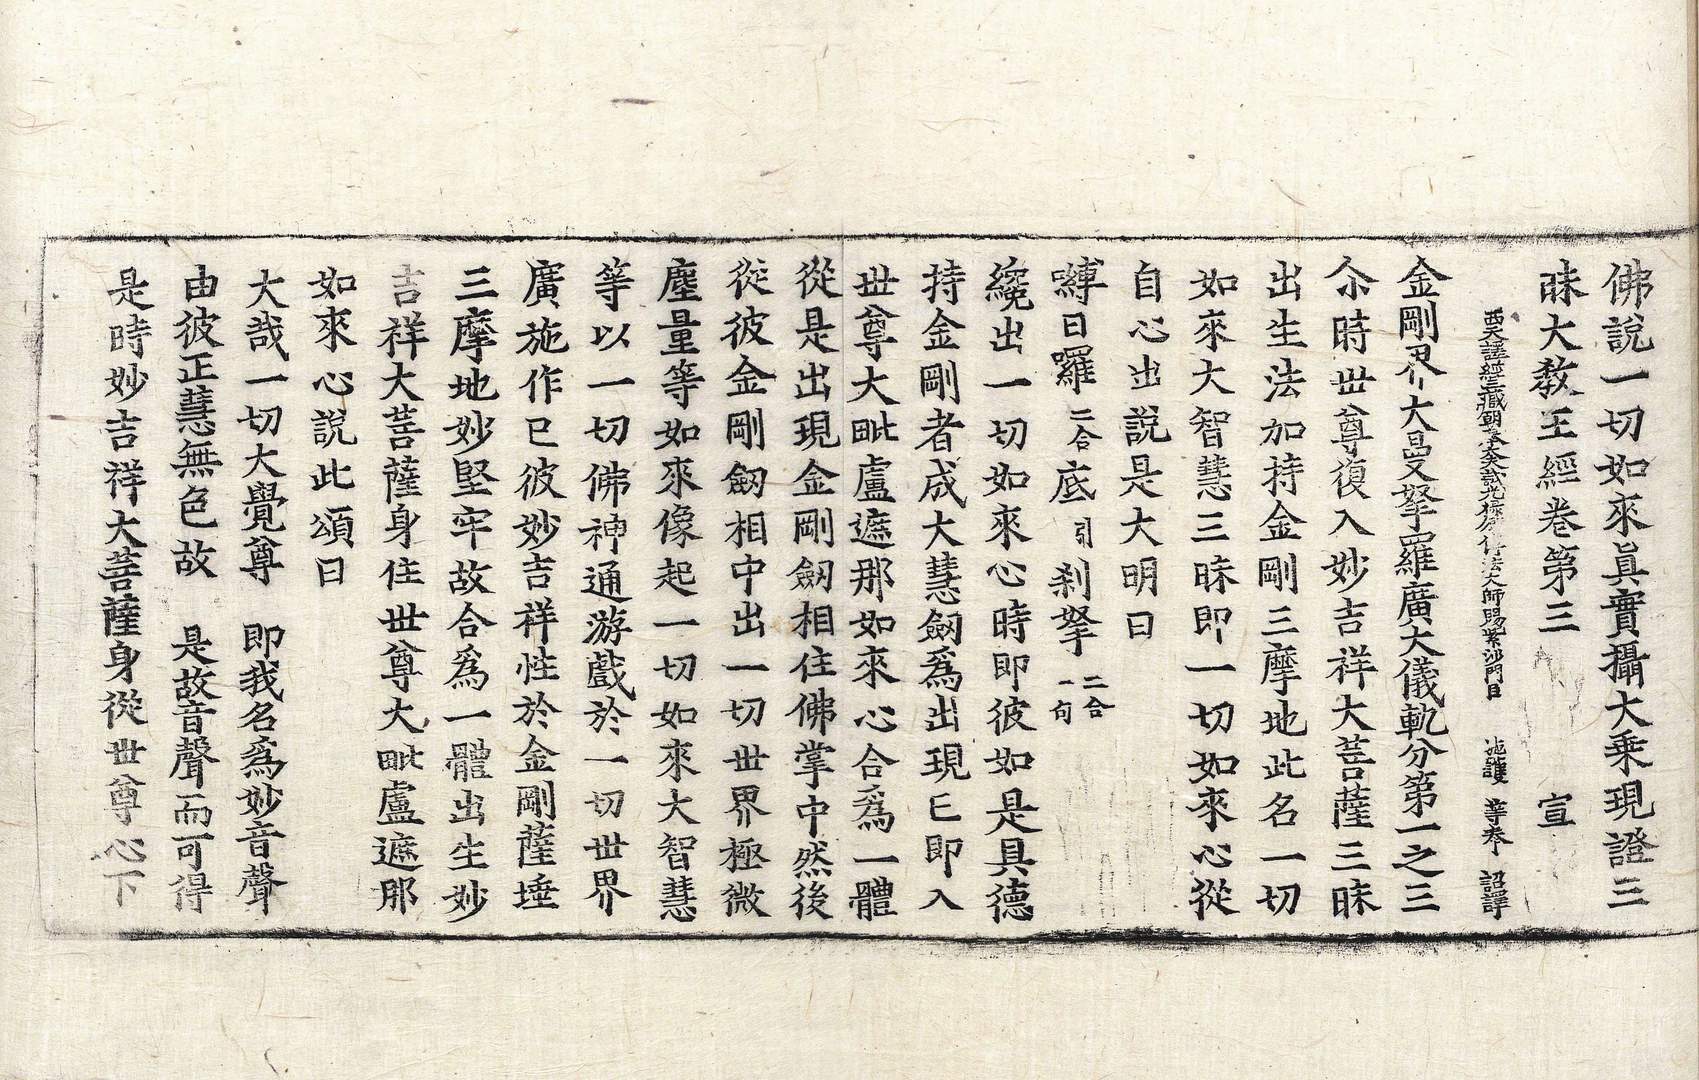 佛說一切如來眞實攝大乘現證三
昧大教王經卷第三　宣
西天譯經三藏朝奉大夫試光祿卿傳法大師賜紫沙門臣　施護　等奉　詔譯
金剛界大曼拏羅廣大儀軌分第一之三
尒時世尊復入妙吉祥大菩薩三昧
出生法加持金剛三摩地此名一切
如來大智慧三昧即一切如來心從
自心出說是大明曰
嚩日囉二合底引刹拏二合一句
纔出一切如來心時即彼如是具德
持金剛者成大慧劒爲出現已即入
世尊大毗盧遮那如來心合爲一體
從是出現金剛劒相住佛掌中然後
從彼金剛劒相中出一切世界極微
塵量等如來像起一切如來大智慧
等以一切佛神通游戲於一切世界
廣施作已彼妙吉祥性於金剛薩埵
三摩地妙堅牢故合爲一體出生妙
吉祥大菩薩身住世尊大毗盧遮那
如來心說此頌曰
大哉一切大覺尊　即我名爲妙音聲
由彼正慧無色故　是故音聲而可得
是時妙吉祥大菩薩身從世尊心下